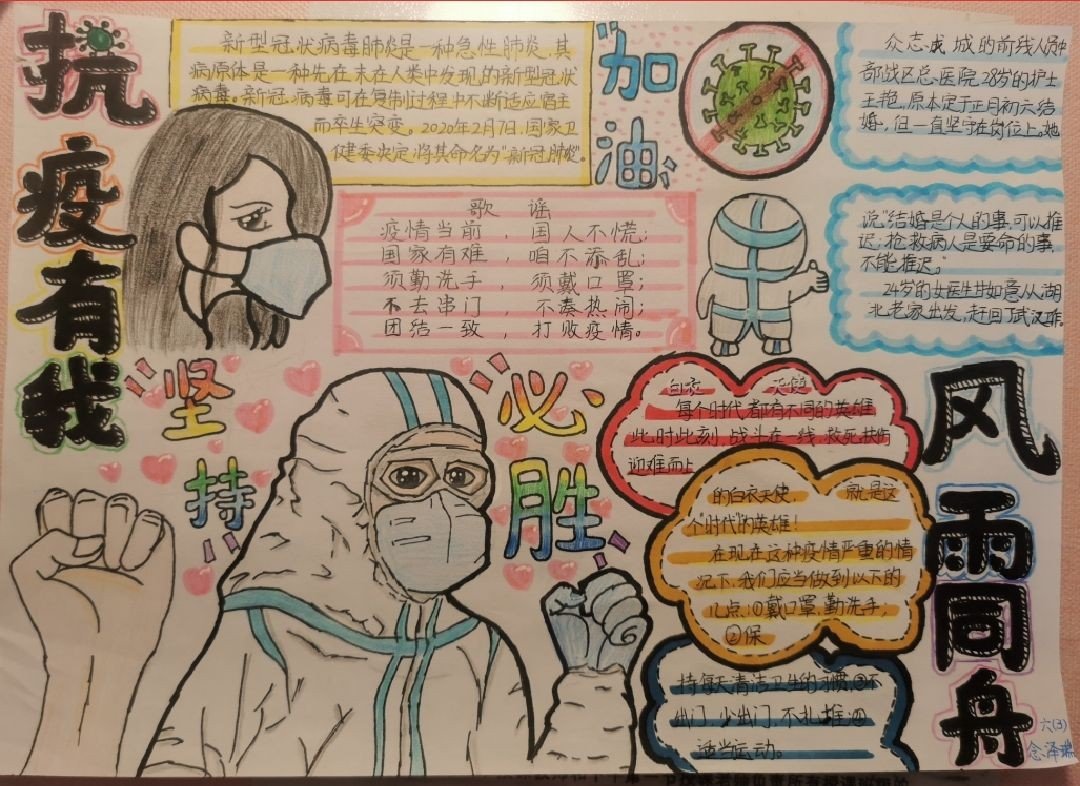 抗疫有我
新型冠状病毒肺炎是一种急性肺炎,其
病原体是一种先在未在人类中发现的新型冠状
病毒。新冠病毒可在复制过程中不断适应宿主
而卒生突变。2020年2月7日,国家卫
健委决定,将其命名为"新冠肺炎"。
加油
众志成城的前线人员中
部战区总医院,28岁的护士
王艳,原本定于正月初六结
婚,但一直坚守在岗位上。她
说"结婚是个人的事,可以推
迟;抢救病人是要命的事,
不能推迟。"
24岁的女医生甘如意从湖
北老家出发,赶回了武汉工作。
歌 谣
疫情当前,国人不慌;
国家有难,咱不添乱;
须勤洗手,须戴口罩;
不去串门 不凑热闹;
团结一致,打败疫情。
坚持
必胜
白衣 天使
每个时代都有不同的英雄
此时此刻,战斗在一线,救死扶伤
迎难而上
的白衣天使 就是这
个"时代"的英雄!
在现在这种疫情严重的情
况下,我们应当做到以下的
几点:①戴口罩,勤洗手,
②保
持每天清洁卫生的习惯,③不
出门,少出门,不扎推④
适当运动。
风雨同舟
六(3)
念泽瑞